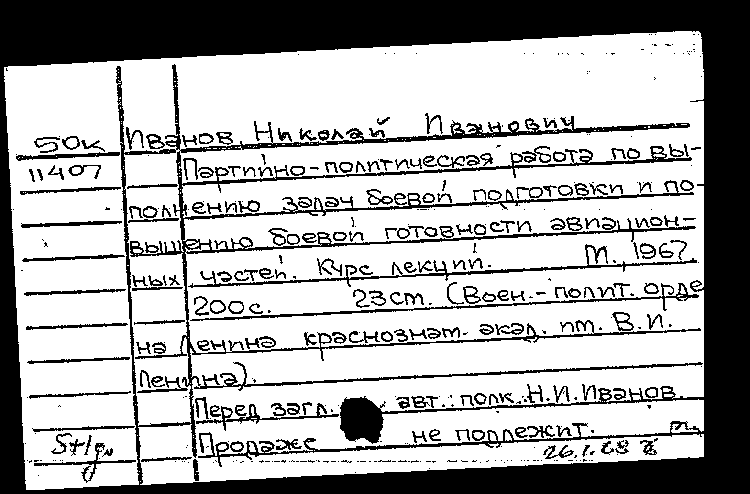 50к Иванов, Николай Иванович
11407 Партийно-политическая работа по вы-
полнению задач боевой подготовки и по-
вышению боевой готовности авиацион-
ных частей. Курс лекций. М., 1967.
200с. 23cm. (Воен.-полит. орде
на Ленина краснознам. акад. им. В.И.
Ленина).
Перед загл. авт.: полк. Н.И. Иванов.
Продаже не подлежит.
26.1.68